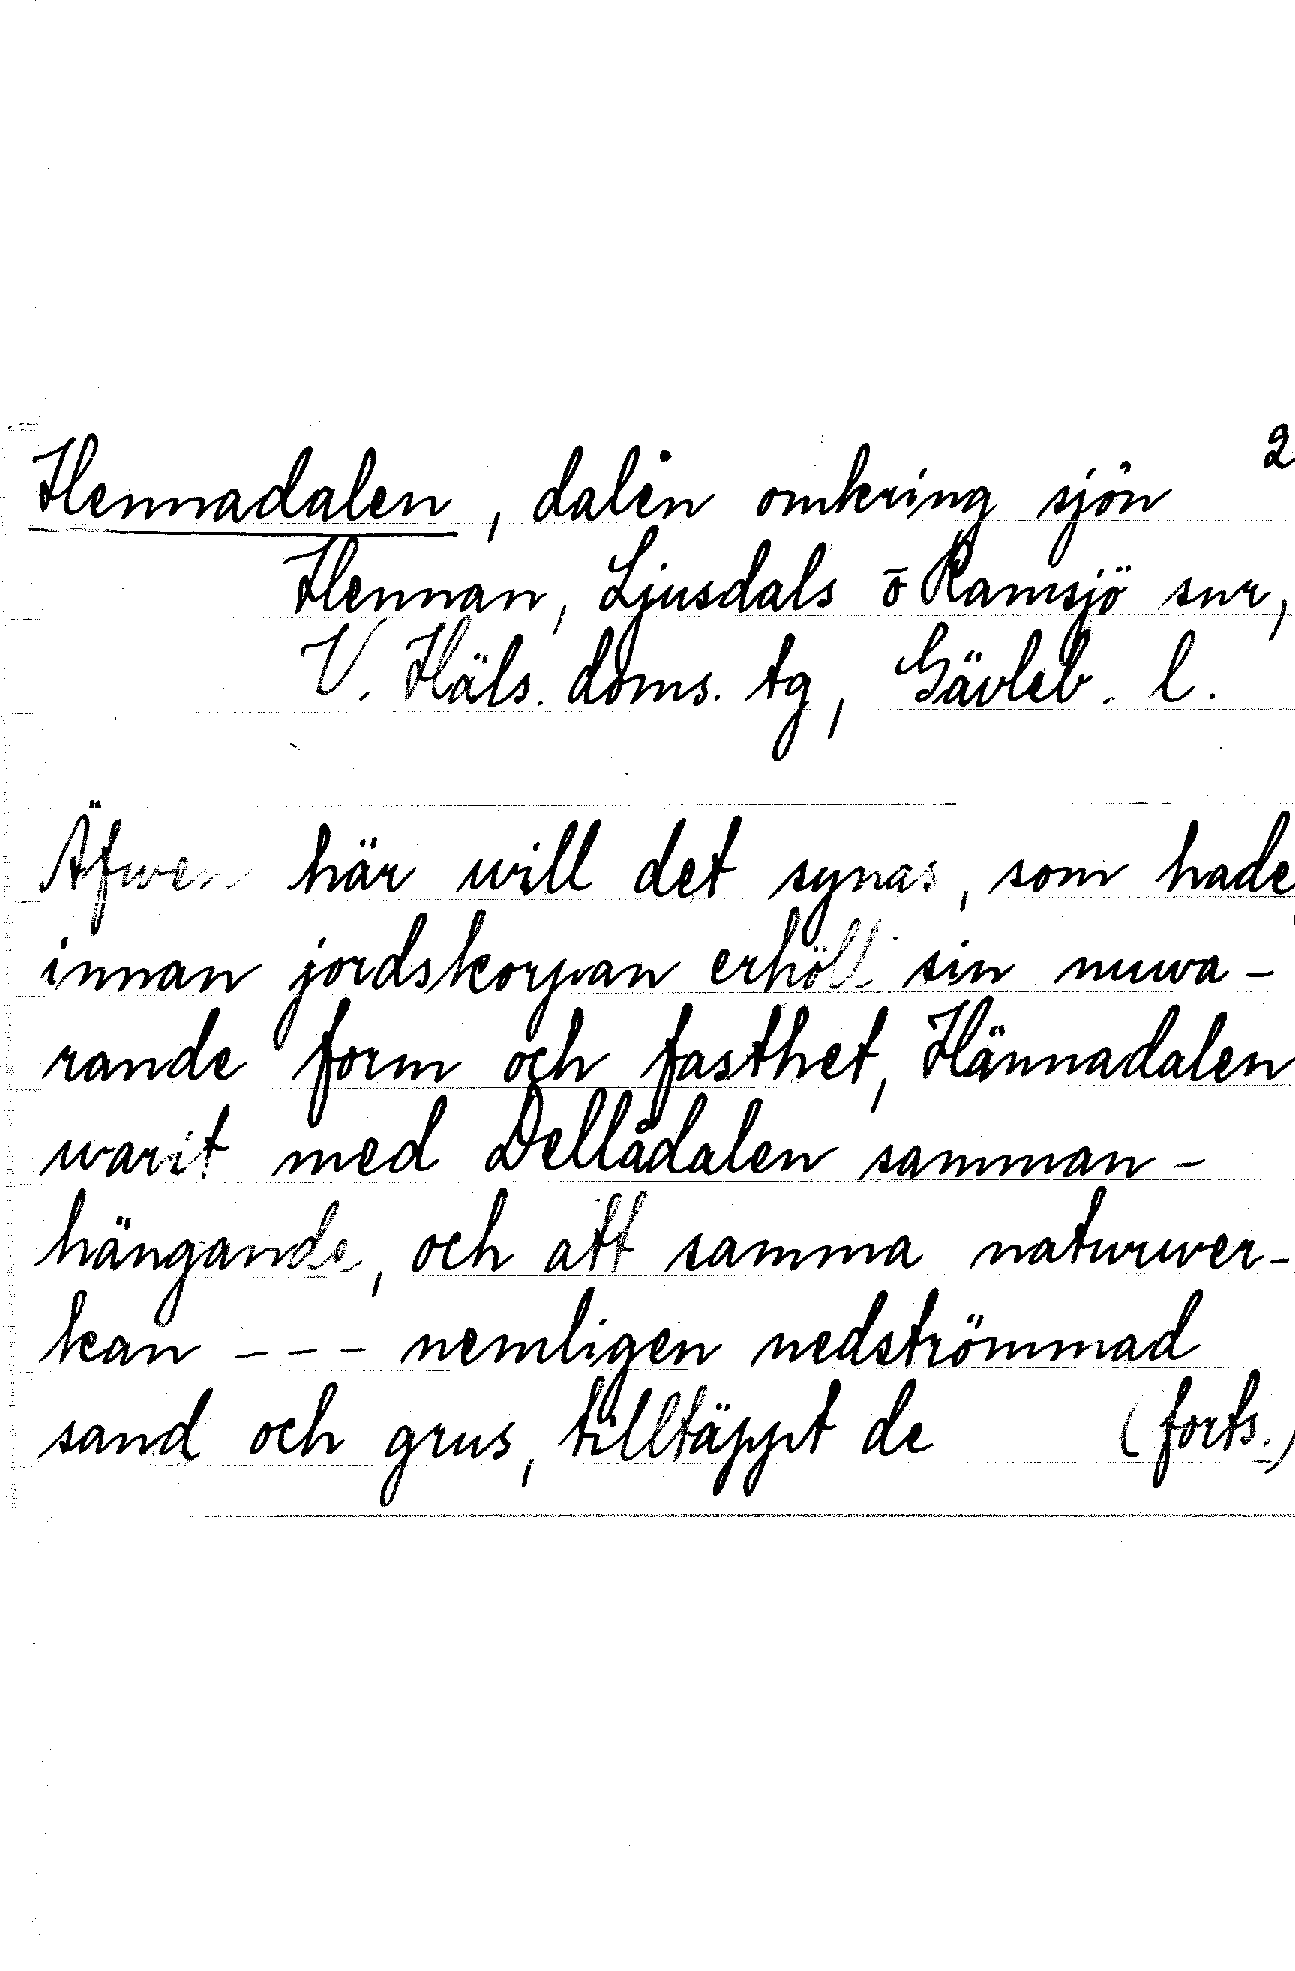 2
Hennadalen, dalen omkring sjön
Hennan, Ljusdals o Ramsjö snr,
V. Häls. doms. tg, Gävleb. l.
Äfwen här will det synas, som hade
innan jordskorpan erhöll sin nuwa-
rande form och fasthet, Hännadalen
warit med Dellådalen samman-
hängande, och att samma naturwer-
kan --- nemligen nedströmmad
sand och grus, tilltäppt de (forts.)